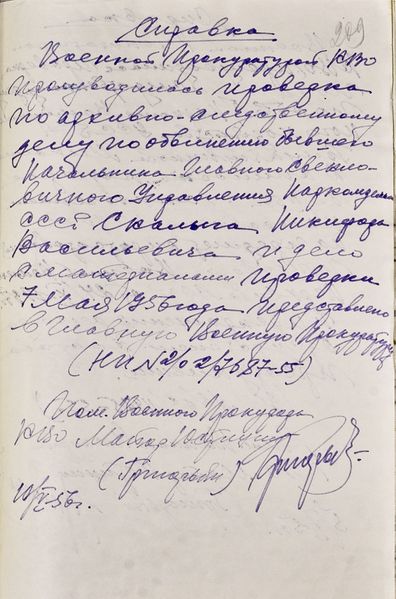 Справка
Военной Прокуратурой КВО
производилась проверка
по архивно-следственному
делу по обвинению бывшего
Начальника Главного Свекло-
вичного Управления Наркомзема
СССР Скалыга Никифора
Васильевича и дело
с материалами проверки
7 мая 1956 года представлено
в Главную Военную Прокуратуру
(НП № 2/02/7687-55)
Пом. Военного Прокурора
КВО Майор Юстиции
10/V-56г.